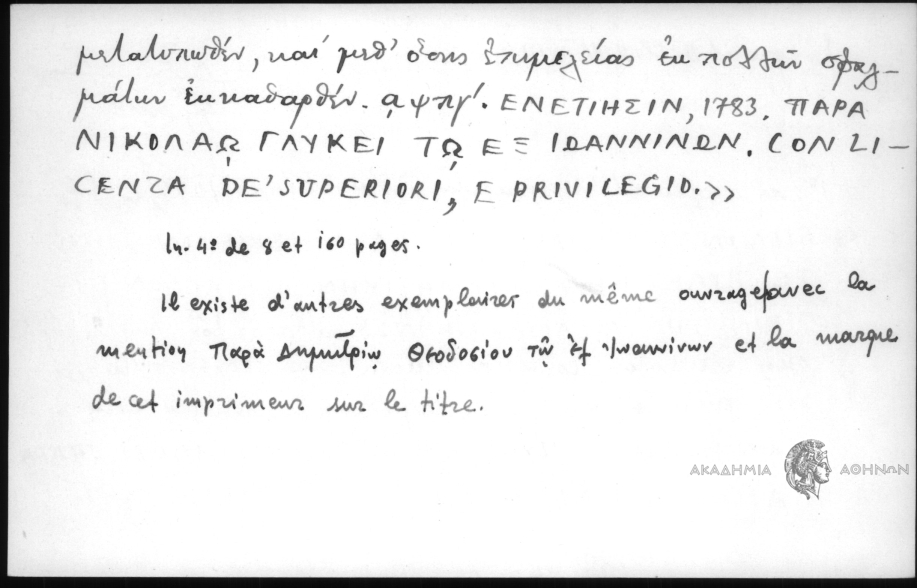 μετατυπωθέν, καί μεθ' ὅσης ἐπιμελείας ἐκ πολλῶν σφαλ-
μάτων ἐκκαθαρθέν. ᾳψπγ'. ΕΝΕΤΙΗΣΙΝ, 1783. ΠΑΡΑ
ΝΙΚΟΛΑῼ ΓΛΥΚΕΙ Τῼ ΕΞ ΙΩΑΝΝΙΝΩΝ. CON LI-
CENZA DE' SUPERIORI, E PRIVILEGIO.>>
In-4º de 8 et 160 pages.
Il existe d'autres exemplaires du même ouvrage, avec la
mention Παρὰ Δημητρίῳ Θεοδοσίου τῷ ἐξ Ἰωαννίνων et la marque
de cet imprimeur sur le titre.
ΑΚΑΔΗΜΙΑ ΑΘΗΝΩΝ